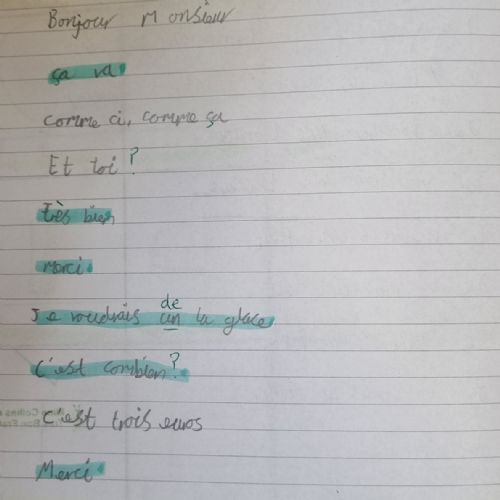 Bonjour Monsieur
ça va.
comme ci, comme ça
Et toi?
très bien
merci.
de
Je voudrais un la glace
C'est combien?
c'est trois euros
Merci.